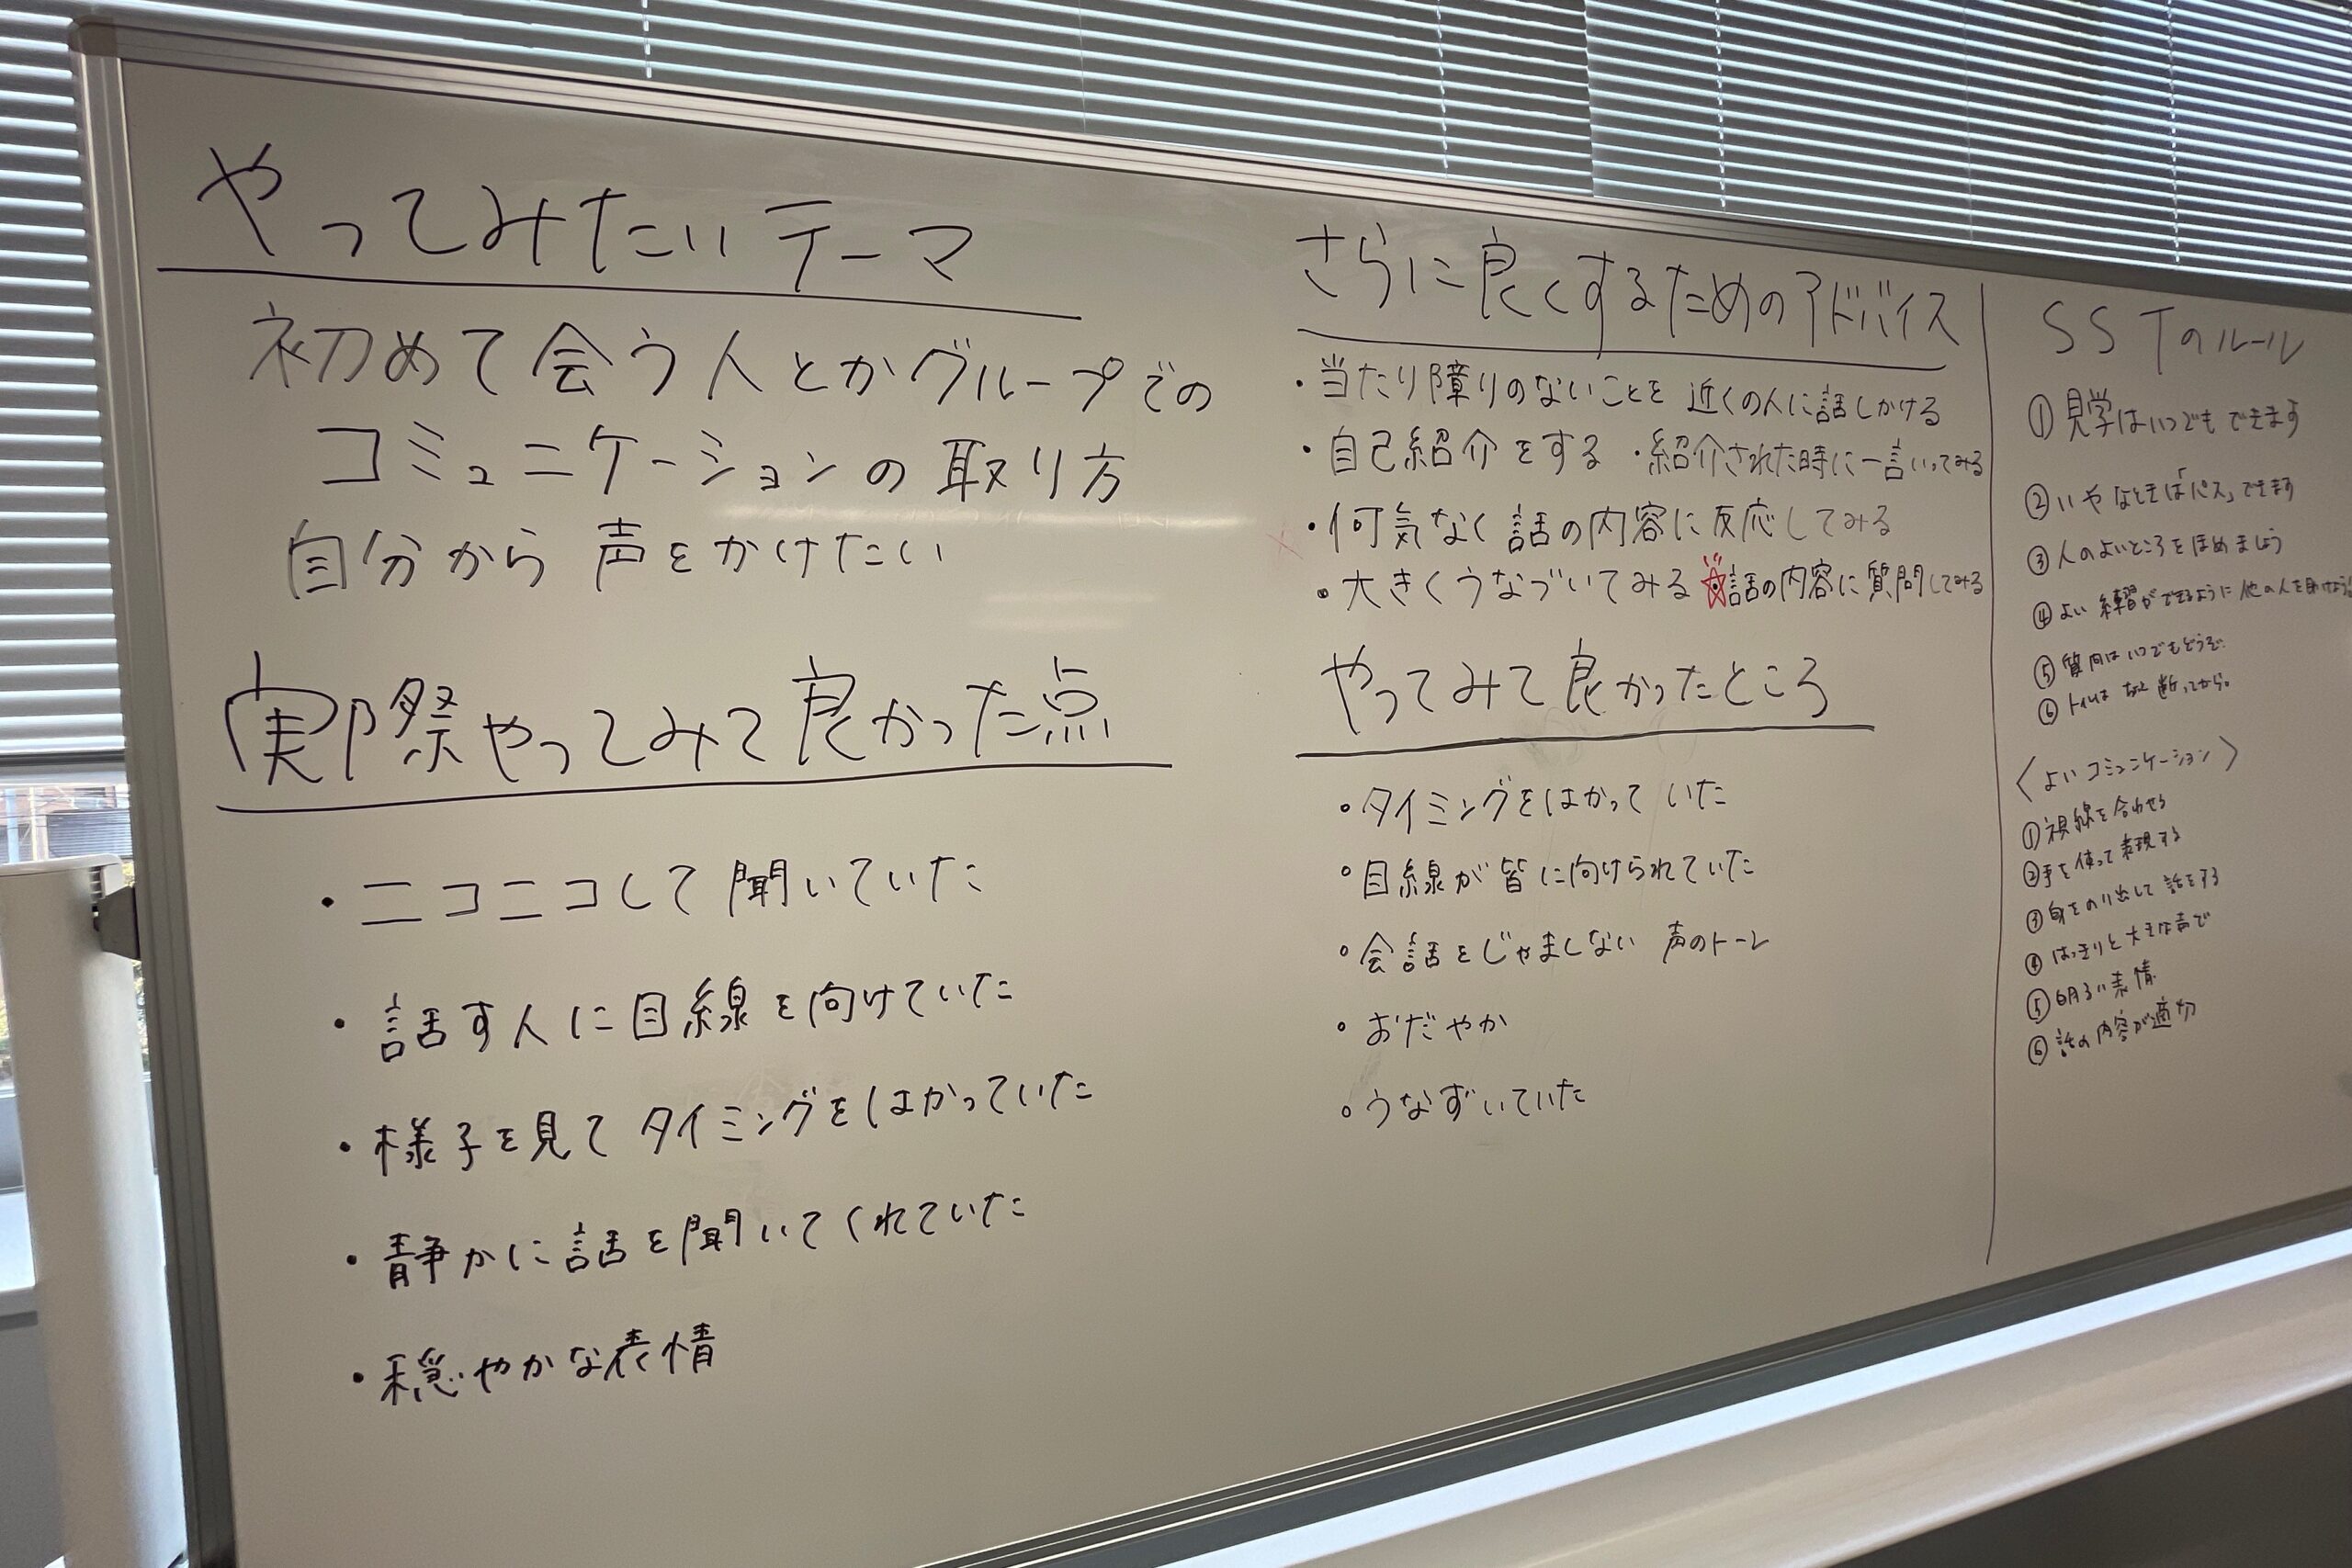 やってみたいテーマ
初めて会う人とかグループでの
コミュニケーションの取り方
自分から声をかけたい
実際やってみて良かった点
・ニコニコして聞いていた
・話す人に目線を向けていた
・様子を見てタイミングをはかっていた
・静かに話を聞いてくれていた
・穏やかな表情
さらに良くするためのアドバイス
・当たり障りのないことを 近くの人に話しかける
・自己紹介をする ・紹介された時に一言いってみる
・何気なく話の内容に反応してみる
・大きくうなづいてみる ☆話の内容に質問してみる
やってみて良かったところ
・タイミングをはかっていた
・目線が皆に向けられていた
・会話をじゃましない 声のトーン
・おだやか
・うなずいていた
SSTのルール
①見学はいつでもできます
②いやなときは「パス」できます
③人のよいところをほめましょう
④よい練習ができるように他の人を助けましょう
⑤質問はいつでもどうぞ
⑥トイレは 断ってから。
〈よいコミュニケーション〉
①視線を合わせる
②手を使って表現する
③身をのり出して話をする
④はっきりと大きな声で
⑤明るい表情
⑥話の内容が適切